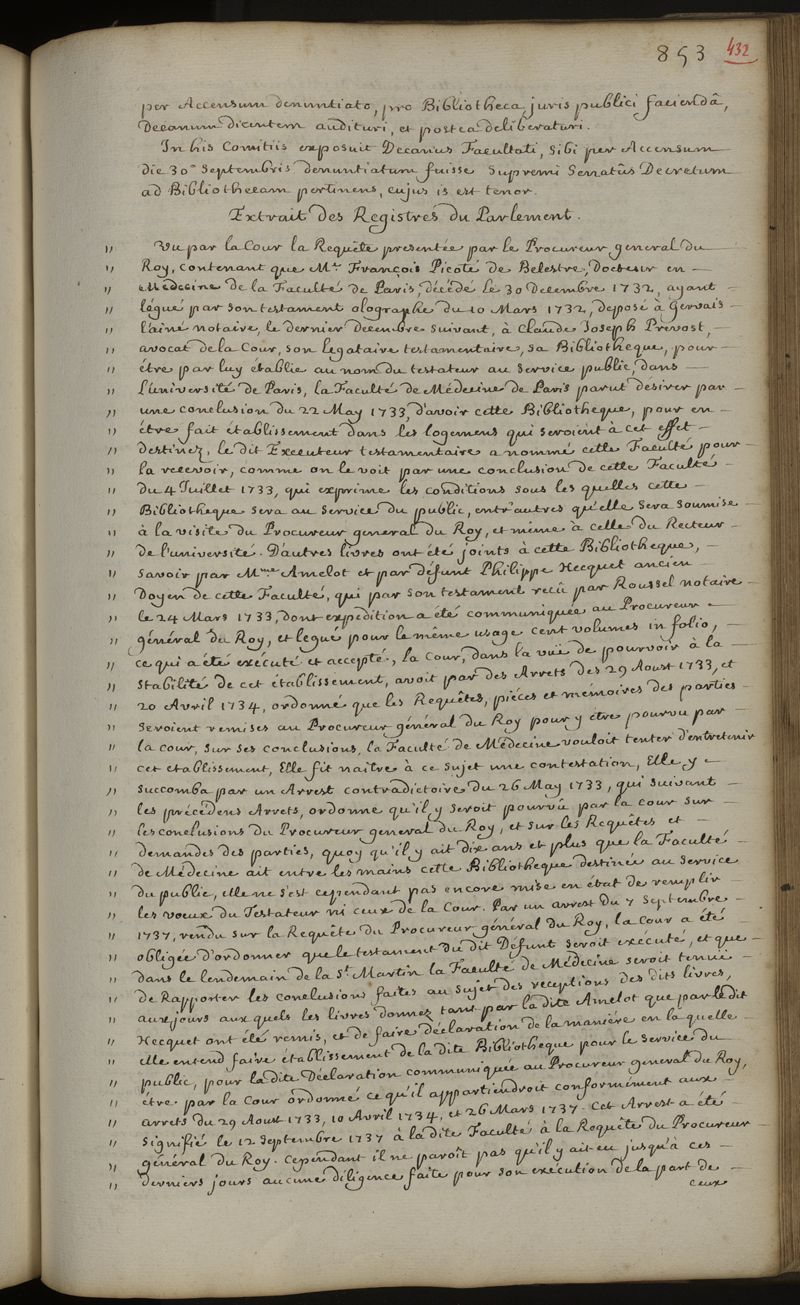 853 432
per Accensum denuntiato, pro Bibliotheca juris publici faciendâ,
Decanum dicentem audituri, et postea deliberaturi.
In his Comitiis exposuit Decanus Facultati, sibi per Accensum
die 30â Septembris denuntiatum fuisse Supremi Senatûs Decretum
ad Bibliothecam pertinens, cujus is est tenor.
Extrait des Registres du Parlement.
" Vu par la Cour la Requête presentée par le Procureur general du —
" Roy, contenant que Mr. François Picoté de Belestre, Docteur en —
" Médecine de la Faculté de Paris, décédé le 30 Decembre 1732, ayant —
" légué par son testament olographe du 10 Mars 1732, deposé à Gervais —
" l'ainé notaire, le dernier Decembre suivant, à Claude Joseph Prevost, —
" avocat de la Cour, son legataire testamentaire, sa Bibliotheque, pour —
" être par luy établie au nom du testateur au service public, dans —
" L'université de Paris, la Faculté de Médecine de Paris parut desirer par —
" une conclusion du 22 May 1733, d'avoir cette Bibliotheque, pour en —
" être fait établissement dans les logemens qui seroient à cet effet —
" destinez, le dit Executeur testamentaire a nommé cette Faculté pour —
" la recevoir, comme on le voit par une conclusion de cette Faculté —
" du 4 Juillet 1733, qui exprime les conditions sous les quelles cette —
" Bibliotheque sera au service du public, entr'autres qu'elle sera soumise —
" à la visite du Procureur general du Roy, et même à celle du Recteur —
" de l'université. D'autres livres ont été joints à cette Bibliotheque, —
" savoir par Mme Amelot et par défunt Philippe Hecquet ancien —
" Doyen de cette Faculté, qui par son testament reçû par Roussel notaire —
" le 24 Mars 1733, dont expedition a été communiquée au Procureur —
" général du Roy, et legué pour le même usage cent volumes in folio, —
" ce qui a été exécuté et accepté, la Cour, dans la vuë de pourvoir à la —
" stabilité de cet établissement, avoit par des Arrets des 29 Aoust 1733, et
" 20 Avril 1734, ordonné que les Requêtes, piéces et mémoires des parties —
" seroient remises au Procureur général du Roy pour y être pourvu par —
" la cour, sur ses conclusions, la Faculté de Médecine vouloit tenter d'entretenir
" cet etablissement, Elle fit naître à ce sujet une contestation, Elle y
" succomba par un Arrest contradictoire du 26 May 1733, qui suivant —
" les précédens Arrets, ordonne qu'il y seroit pourvû par la cour sur —
" les conclusions du Procureur general du Roy, et sur les Requêtes et —
" demandes des parties, quoy qu'il y ait dix ans et plus que la Faculté —
" de Médecine ait entre les mains cette Bibliotheque destinée au service
" du public, elle ne s'est cependant pas encore mise en état de remplir
" les voeux du Testateur ni ceux de la Cour. Par un arrest du 7 Septembre —
" 1737, rendu sur la Requête du Procureur général du Roy, la cour a été —
" obligée d'ordonner que le testament du dit Défunt seroit exécuté, et que —
" dans le lendemain de la St. Martin la Faculté de Médecine seroit tenuë —
" de Rapporter les conclusions faites au sujet des receptions des dits livres,
" aux jours aux quels les livres donnez tant par la dite Amelot que par le dit
" Hecquet ont été remis, et de faire déclaration de la maniére en la quelle —
" elle entend faire établissement de la dite Bibliotheque pour le service du
" public, pour la dite Déclaration communiquée au Procureur general du Roy,
" être par la Cour ordonné ce qu'il appartiendroit conformément aux —
" arrets du 29 Aoust 1733, 10 Avril 1734, et 26 Mars 1737. Cet Arrest a été —
" signifié le 12 Septembre 1737 à la dite Faculté à la Requête du Procureur —
" général du Roy. Cependant il ne paroît pas qu'il y ait eu jusqu'à ces —
" derniers jours aucune diligence faite pour son exécution de la part de —
ceux